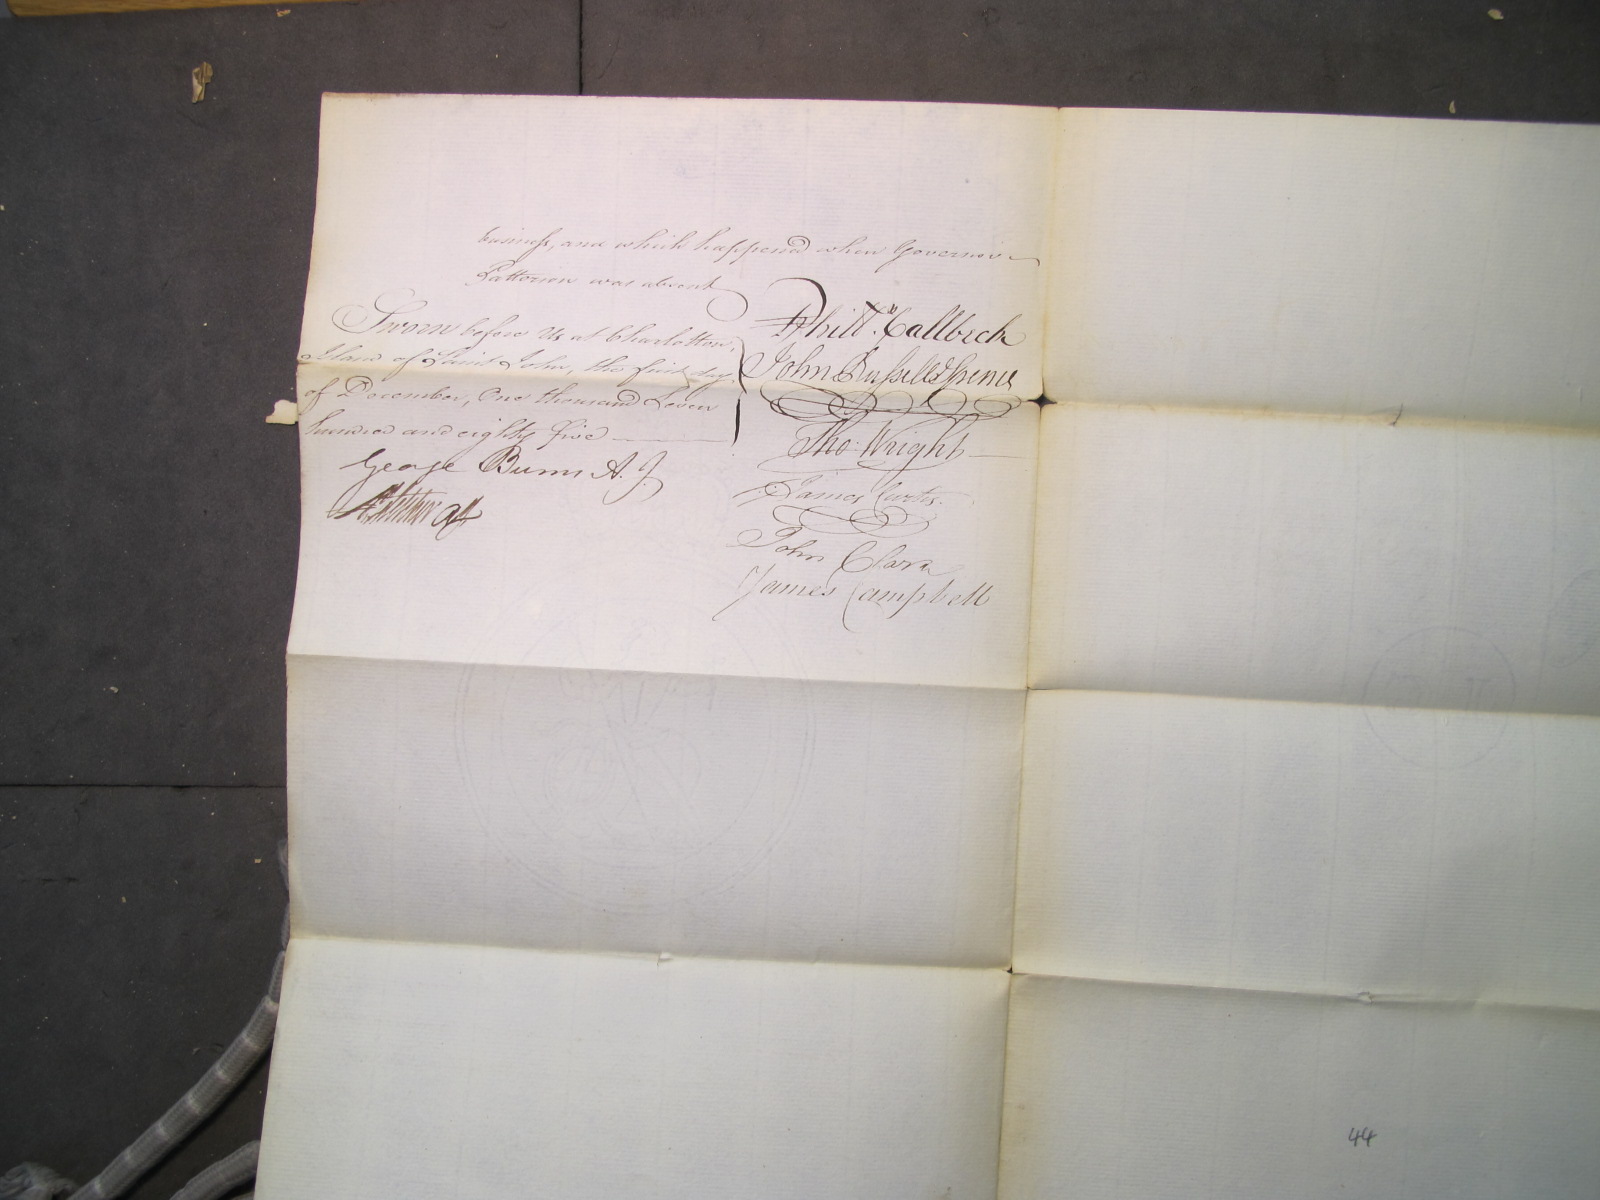 business, and which happened when Governor
Patterson was absent
Sworn before Us at Charlotton,
Island of Saint John, the first day
of December, One thousand Seven
hundred and eighty five
George Burns A. J.
Phill.^s Callbeck
John Russell Spence
Tho: Wright
James Curtis.
John Clark
James Campbell
44